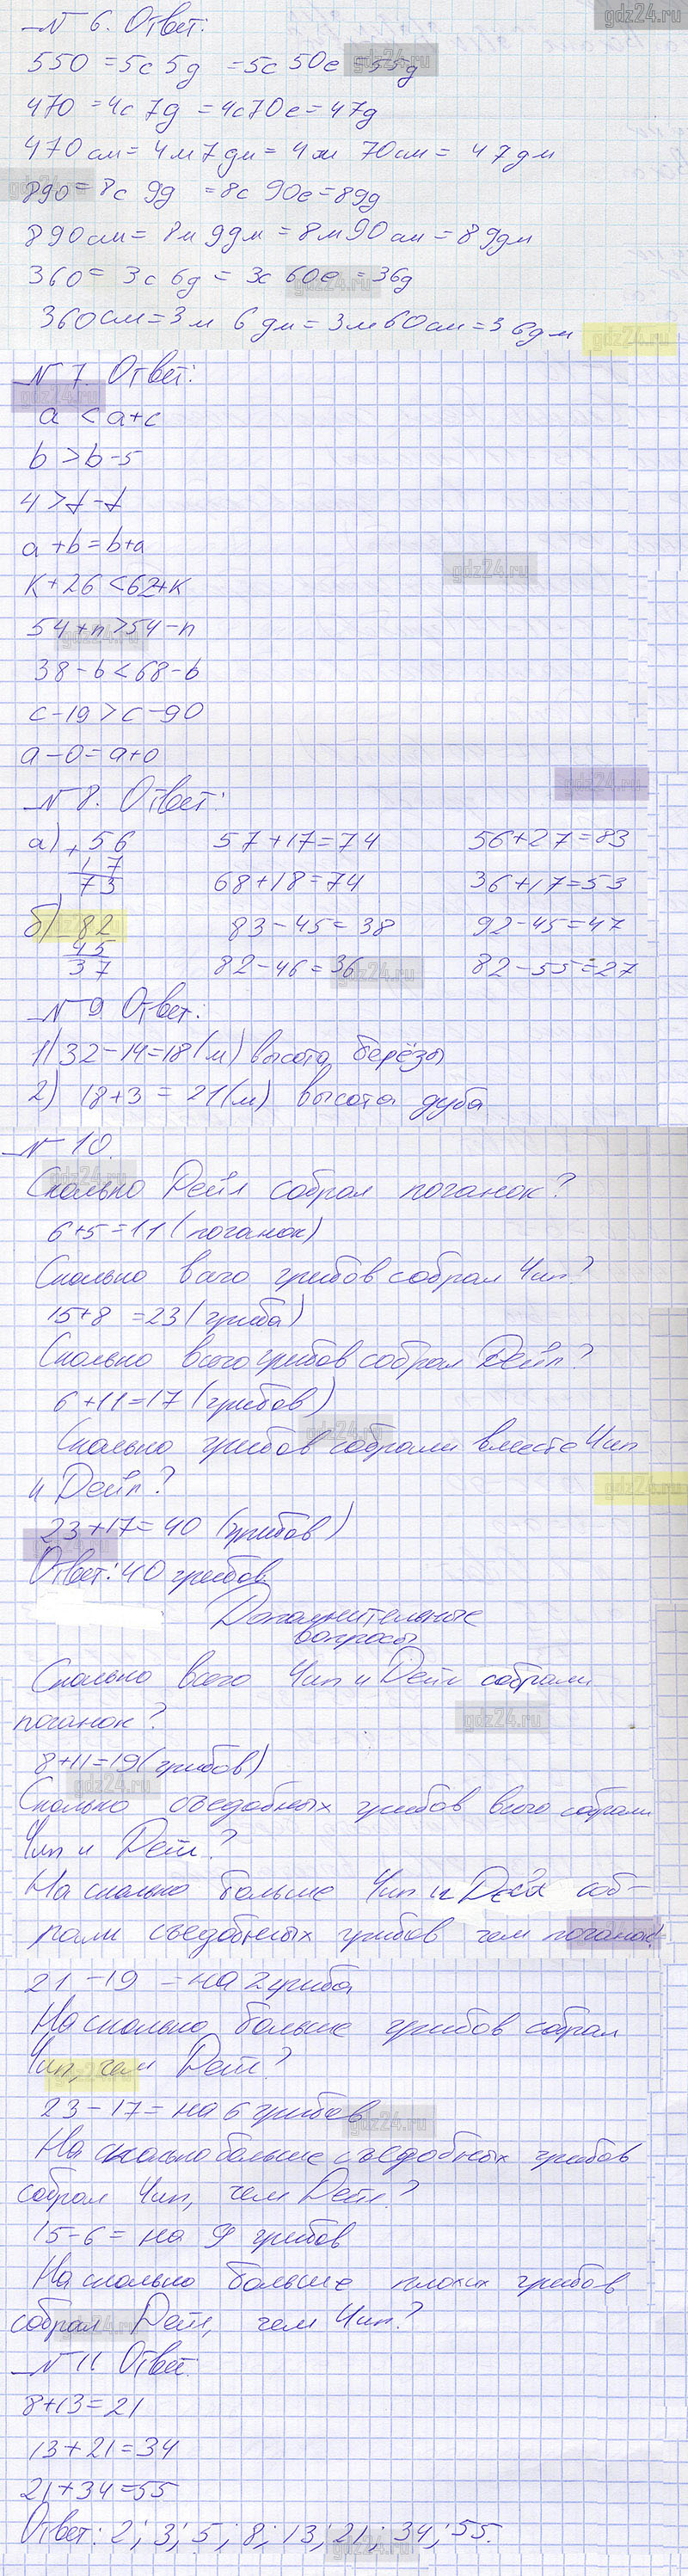 gdz24.ru
№ 6. Ответ:
550 = 5с 5д = 5с 50е = 55д
470 = 4с 7д = 4с70е = 47д
470 см = 4 м 7 дм = 4 м 70 см = 47 дм
890 = 8с 9д = 8с 90е = 89д
890 см = 8м 9дм = 8м 90 см = 89дм
360 = 3с 6д = 3с 60е = 36д
360 см = 3 м 6 дм = 3м 60 см = 36дм
№ 7. Ответ:
a < a+c
b > b-5
4 > t - t
a + b = b+a
к + 26 < 62+к
54 + n > 54 - n
38 - b < 68 - b
c - 19 > c - 90
a - 0 = a + 0
№ 8. Ответ:
а) + 56 57 + 17 = 74 56 + 27 = 83
17
73 68 + 18 = 74 36 + 17 = 53
б) 82 83 - 45 = 38 92 - 45 = 47
45
37 82 - 46 = 36 82 - 55 = 27
№ 9 Ответ:
1) 32 - 14 = 18 (м) высота берёзы
2) 18 + 3 = 21 (м) высота дуба
№ 10.
Сколько Дейл собрал поганок?
6 + 5 = 11 (поганок)
Сколько всего грибов собрал Чип?
15 + 8 = 23 (гриба)
Сколько всего грибов собрал Дейл?
6 + 11 = 17 (грибов)
Сколько грибов собрали вместе Чип
и Дейл?
23 + 17 = 40 (грибов)
Ответ: 40 грибов
Дополнительные
вопросы
Сколько всего Чип и Дейл собрали
поганок?
8 + 11 = 19 (грибов)
Сколько съедобных грибов всего собрали
Чип и Дейл?
На сколько больше Чип и Дейл соб-
рали съедобных грибов чем поганок?
21 - 19 = на 2 гриба
На сколько больше грибов собрал
Чип, чем Дейл?
23 - 17 = на 6 грибов
На сколько больше съедобных грибов
собрал Чип, чем Дейл?
15 - 6 = на 9 грибов
На сколько больше плохих грибов
собрал Дейл, чем Чип?
№ 11 Ответ
8 + 13 = 21
13 + 21 = 34
21 + 34 = 55
Ответ: 2; 3; 5; 8; 13; 21; 34; 55.